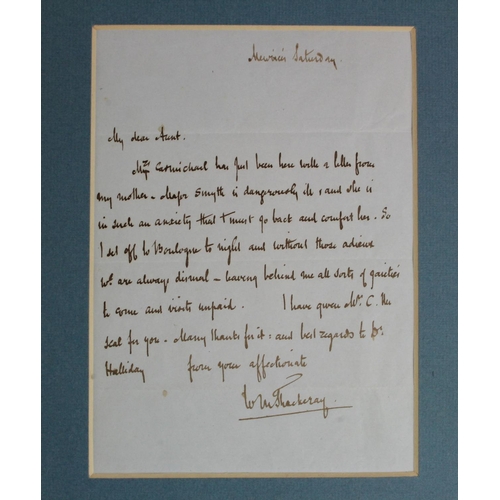 Saturday.
My dear Aunt.
Mrs. Carmichael has just been here with a letter from
my mother - Major Smyth is dangerously ill, and she is
in such an anxiety that I must go back and comfort her. So
I set off to Boulogne to night and without those adieux
wh. are always dismal - leaving behind me all sorts of gaieties
to come and visits unpaid. I have given Mrs. C. the
seal for you. - Many thanks for it: and best regards to Dr.
Halliday from your affectionate
W M Thackeray.